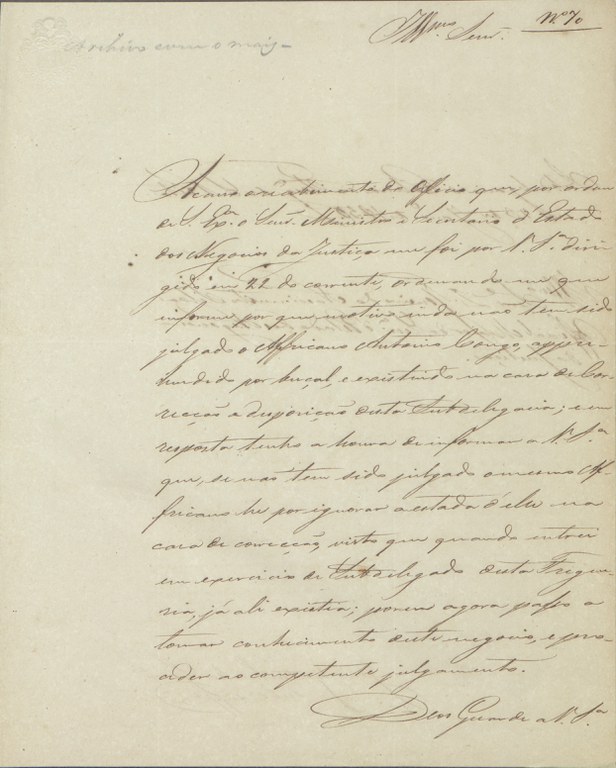 Nº 70
Illmo Senr.
Archive com o mais
Accuso o recebimento do Officio que, por ordem
de S. Exª. o Senr. Ministro e Secretario d'Estado
dos Negocios da Justiça me foi por V. Sª. diri-
gido em 22 do corrente, ordenando me que
informe por que motivo inda não tem sido
julgado o Affricano Antonio Congo, appre-
hendido por buçal, e existindo na casa de Cor-
recção a disposição desta Subdelegacia; e em
resposta tenho a honra de informar a V. Sª
que, se não tem sido julgado o mesmo Af-
fricano he por ignorar a estada d'elle na
casa de correcção, visto que quando entrei
em exercicio de Subdelegado desta Fregue-
sia, já ali existia; porem agora passo a
tomar conhecimento deste negocio, e pro-
ceder ao competente julgamento.
Deos Guarde a V. Sª